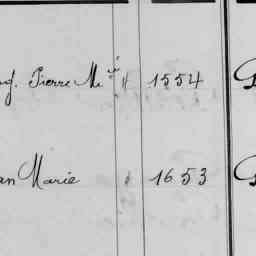 Pierre M ie " 1554
an Marie " 1653